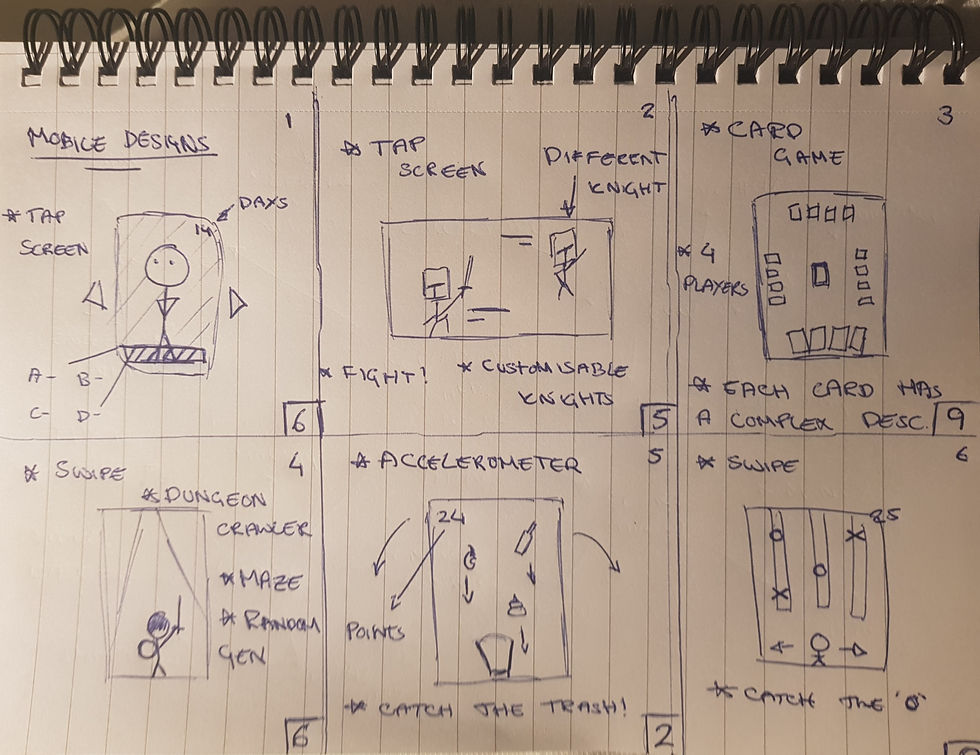 MOBILE DESIGNS
1
* TAP
SCREEN
DAYS
14
A-
B-
C-
D-
6
2
* TAP
SCREEN
DIFFERENT
KNIGHT
* FIGHT!
* CUSTOMISABLE
KNIGHTS
5
3
* CARD
GAME
* 4
PLAYERS
* EACH CARD HAS
A COMPLEX DESC.
9
4
* SWIPE
* DUNGEON
CRAWLER
* MAZE
* RANDOM
GEN
6
5
* ACCELEROMETER
24
POINTS
* CATCH THE TRASH!
2
6
* SWIPE
25
* CATCH THE 'O'